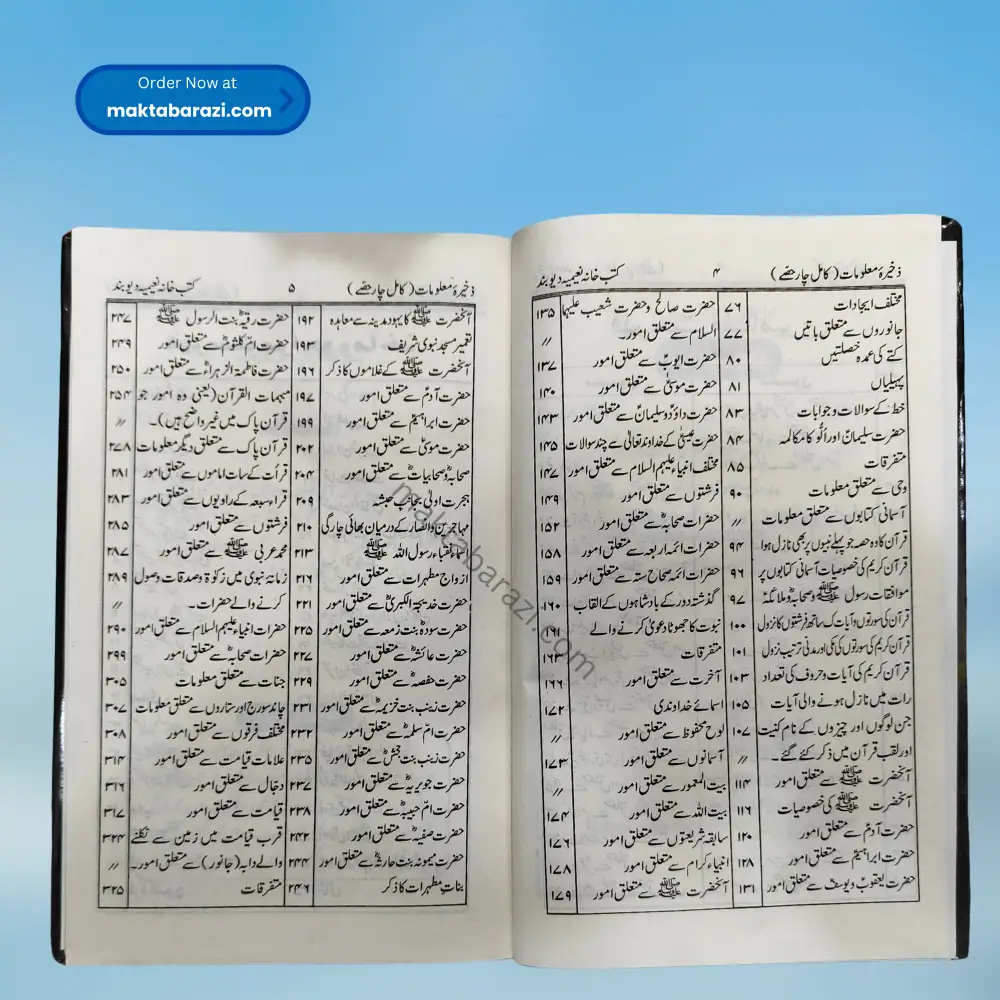 Order Now at
maktabarazi.com
ذخیرۂ معلومات (کامل چار حصے) ۴ کتب خانہ نعیمیہ دیوبند
مختلف ایجادات ۷۶
جانوروں سے متعلق باتیں ۷۷
کتے کی عمدہ خصلتیں ۸۰
پہیلیاں ۸۱
خط کے سوالات و جوابات ۸۳
حضرت سلیمانؑ اور اُلّو کا مکالمہ ۸۴
متفرقات ۸۵
وحی سے متعلق معلومات ۹۰
آسمانی کتابوں سے متعلق معلومات 〃
قرآن کا وہ حصہ جو پہلے نبیوں پر بھی نازل ہوا ۹۴
قرآن کریم کی خصوصیات آسمانی کتابوں پر ۹۶
موافقات رسول ﷺ و صحابہؓ و ملائکہؑ ۹۷
قرآن کی سورتوں و آیات کے ساتھ فرشتوں کا نزول ۱۰۰
قرآن کریم کی سورتوں کی مکی اور مدنی ترتیب نزول ۱۰۱
قرآن کریم کی آیات و حروف کی تعداد ۱۰۳
رات میں نازل ہونے والی آیات ۱۰۵
جن لوگوں اور چیزوں کے نام کنیت ۱۰۷
اور لقب قرآن میں ذکر کئے گئے۔ 〃
آنحضرت ﷺ سے متعلق امور ۱۱۴
آنحضرت ﷺ کی خصوصیات ۱۱۶
حضرت آدمؑ سے متعلق امور ۱۲۰
حضرت ابراہیمؑ سے متعلق امور ۱۲۸
حضرت یعقوبؑ و یوسفؑ سے متعلق امور ۱۳۱
حضرت صالحؑ و حضرت شعیب علیہما ۱۳۵
السلام سے متعلق امور۔ 〃
حضرت ایوبؑ سے متعلق امور ۱۳۷
حضرت موسیٰؑ سے متعلق امور ۱۴۰
حضرت داؤدؑ و سلیمانؑ سے متعلق امور ۱۴۳
حضرت عیسیٰؑ کے خداوند تعالیٰ سے چند سوالات ۱۴۵
مختلف انبیاء علیہم السلام سے متعلق امور ۱۴۷
فرشتوں سے متعلق امور ۱۴۹
حضرات صحابہؓ سے متعلق امور ۱۵۲
حضرات ائمہ اربعہ سے متعلق امور ۱۵۸
حضرات ائمہ صحاح ستہ سے متعلق امور ۱۵۹
گذشتہ دور کے بادشاہوں کے القاب ۱۶۰
نبوت کا جھوٹا دعویٰ کرنے والے ۱۶۱
متفرقات ۱۶۳
آخرت سے متعلق امور ۱۶۶
اسمائے خداوندی ۱۷۲
لوح محفوظ سے متعلق امور 〃
آسمانوں سے متعلق امور ۱۷۳
بیت المعمور سے متعلق امور 〃
بیت اللہ سے متعلق امور ۱۷۴
سابقہ شریعتوں سے متعلق امور ۱۷۶
انبیاء کرام سے متعلق امور ۱۷۸
آنحضرت ﷺ سے متعلق امور ۱۷۹
ذخیرۂ معلومات (کامل چار حصے) ۵ کتب خانہ نعیمیہ دیوبند
آنحضرت ﷺ کا یہود مدینہ سے معاہدہ ۱۹۲
تعمیر مسجد نبوی شریف ۱۹۳
آنحضرت ﷺ کے غلاموں کا ذکر ۱۹۶
حضرت آدمؑ سے متعلق امور ۱۹۷
حضرت ابراہیمؑ سے متعلق امور ۱۹۹
حضرت موسیٰؑ سے متعلق امور ۲۰۲
صحابہؓ و صحابیاتؓ سے متعلق امور ۲۰۴
ہجرت اولیٰ بجانب حبشہ ۲۰۹
مہاجرین و انصار کے درمیان بھائی چارگی ۲۱۰
اسماء نقباء رسول اللہ ﷺ ۲۱۳
ازواج مطہرات سے متعلق امور ۲۱۶
حضرت خدیجۃ الکبریٰؓ سے متعلق امور ۲۲۱
حضرت سودہؓ بنت زمعہ سے متعلق امور ۲۲۵
حضرت عائشہؓ سے متعلق امور ۲۲۷
حضرت حفصہؓ سے متعلق امور ۲۲۹
حضرت زینب بنت خزیمہؓ سے متعلق امور ۲۳۱
حضرت ام سلمہؓ سے متعلق امور ۲۳۲
حضرت زینب بنت جحشؓ سے متعلق امور ۲۳۵
حضرت جویریہؓ سے متعلق امور ۲۳۷
حضرت ام حبیبہؓ سے متعلق امور ۲۳۸
حضرت صفیہؓ سے متعلق امور ۲۴۲
حضرت میمونہ بنت حارثؓ سے متعلق امور ۲۴۴
بنات مطہرات کا ذکر ۲۴۶
حضرت رقیہؓ بنت الرسول ﷺ ۲۴۷
حضرت ام کلثومؓ سے متعلق امور ۲۴۹
حضرت فاطمۃ الزہراءؓ سے متعلق امور ۲۵۰
مبہمات القرآن (یعنی وہ امور جو ۲۵۴
قرآن پاک میں غیر واضح ہیں)۔ 〃
قرآن پاک سے متعلق دیگر معلومات ۲۷۸
قرأت کے سات اماموں سے متعلق امور ۲۸۱
قراء سبعہ کے راویوں سے متعلق امور ۲۸۳
فرشتوں سے متعلق امور ۲۸۵
محمد عربی ﷺ سے متعلق امور ۲۸۷
زمانۂ نبوی میں زکوٰۃ و صدقات وصول ۲۸۹
کرنے والے حضرات۔ 〃
حضرات انبیاء علیہم السلام سے متعلق امور ۲۹۰
حضرات صحابہؓ سے متعلق امور ۲۹۹
جنات سے متعلق معلومات ۳۰۵
چاند سورج اور ستاروں سے متعلق معلومات ۳۰۷
مختلف فرقوں سے متعلق امور ۳۰۸
علامات قیامت سے متعلق امور ۳۱۴
دجال سے متعلق امور ۳۱۶
قیامت سے متعلق امور ۳۱۷
قرب قیامت میں زمین سے نکلنے ۳۲۴
والے دابہ (جانور) سے متعلق امور۔ 〃
متفرقات ۳۲۵
maktabarazi.com